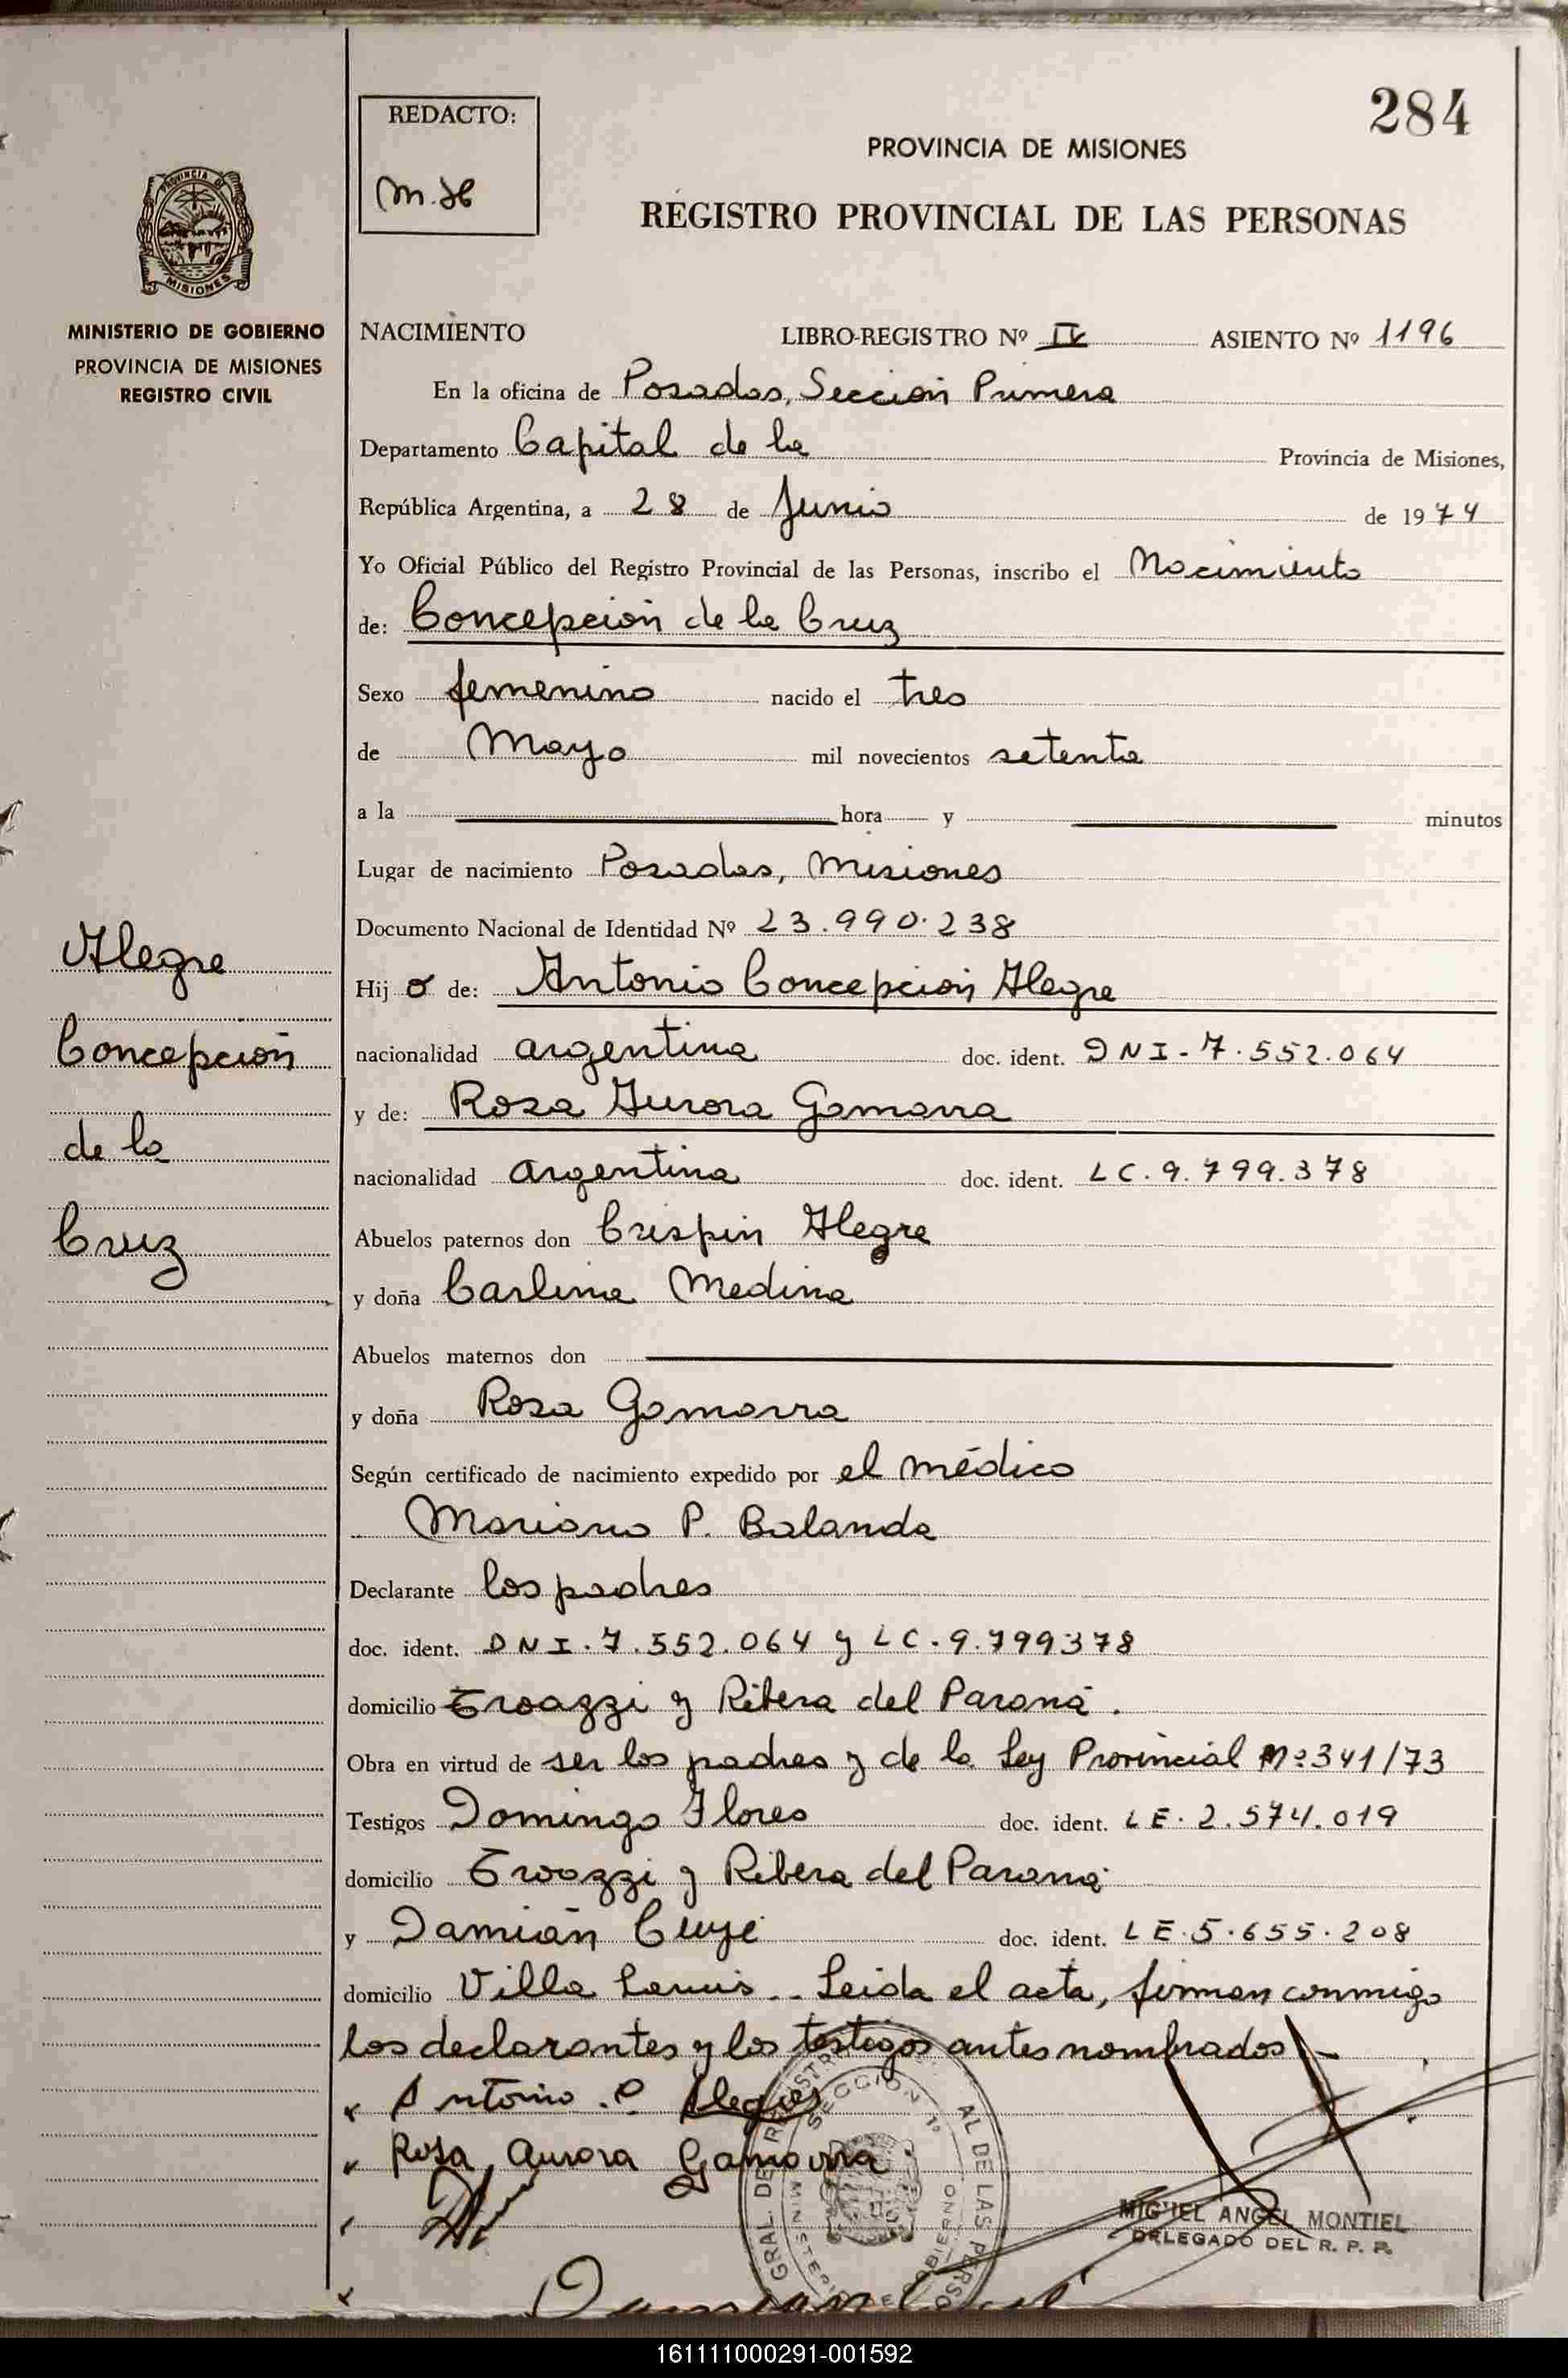 284
REDACTO:
M.H
PROVINCIA DE MISIONES
REGISTRO PROVINCIAL DE LAS PERSONAS
PROVINCIA DE
MISIONES
MINISTERIO DE GOBIERNO
PROVINCIA DE MISIONES
REGISTRO CIVIL
NACIMIENTO LIBRO-REGISTRO Nº IV ASIENTO Nº 1196
En la oficina de Posadas, Sección Primera
Departamento Capital de la Provincia de Misiones,
República Argentina, a 28 de Junio de 1974
Yo Oficial Público del Registro Provincial de las Personas, inscribo el Nacimiento
de: Concepción de la Cruz
Sexo femenino nacido el tres
de Mayo mil novecientos setenta
a la hora y minutos
Lugar de nacimiento Posadas, Misiones
Documento Nacional de Identidad Nº 23.990.238
Alegre
Concepción
de la
Cruz
Hij a de: Antonio Concepción Alegre
nacionalidad argentina doc. ident. DNI-7.552.064
y de: Rosa Aurora Gamarra
nacionalidad argentina doc. ident. LC.9.799.378
Abuelos paternos don Crispin Alegre
y doña Carlina Medina
Abuelos maternos don
y doña Rosa Gamarra
Según certificado de nacimiento expedido por el médico
Mariano P. Balanda
Declarante los padres
doc. ident. DNI.7.552.064 y LC.9.799378
domicilio y Ribera del Paraná.
Obra en virtud de ser los padres y de la Ley Provincial Nº341/73
Testigos Domingo Flores doc. ident. LE.2.574.019
domicilio y Ribera del Paraná
y Damián doc. ident. LE.5.655.208
domicilio Villa Lanús.. Leida el acta, firman conmigo
los declarantes y los testigos antes nombrados.-
x Antonio .C Alegre
x Rosa Aurora Gamarra
MIGUEL ANGEL MONTIEL
DELEGADO DEL R. P. P.
SECCION 1ª
161111000291-001592